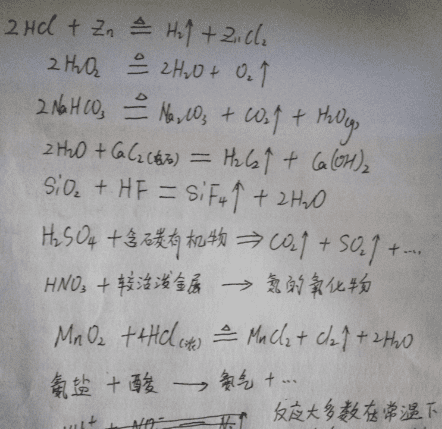 2HCl + Zn ≜ H₂↑ + ZnCl₂
2H₂O₂ ≜ 2H₂O + O₂↑
2NaHCO₃ ≜ Na₂CO₃ + CO₂↑ + H₂O(g)
2H₂O + CaC₂(电石) = H₂C₂↑ + Ca(OH)₂
SiO₂ + HF = SiF₄↑ + 2H₂O
H₂SO₄ + 含碳有机物 ⇒ CO₂↑ + SO₂↑ + ...
HNO₃ + 较活泼金属 → 氮的氧化物
MnO₂ + 4HCl(浓) ≜ MnCl₂ + Cl₂↑ + 2H₂O
+ 酸 → + ...
反应大多数在常温下